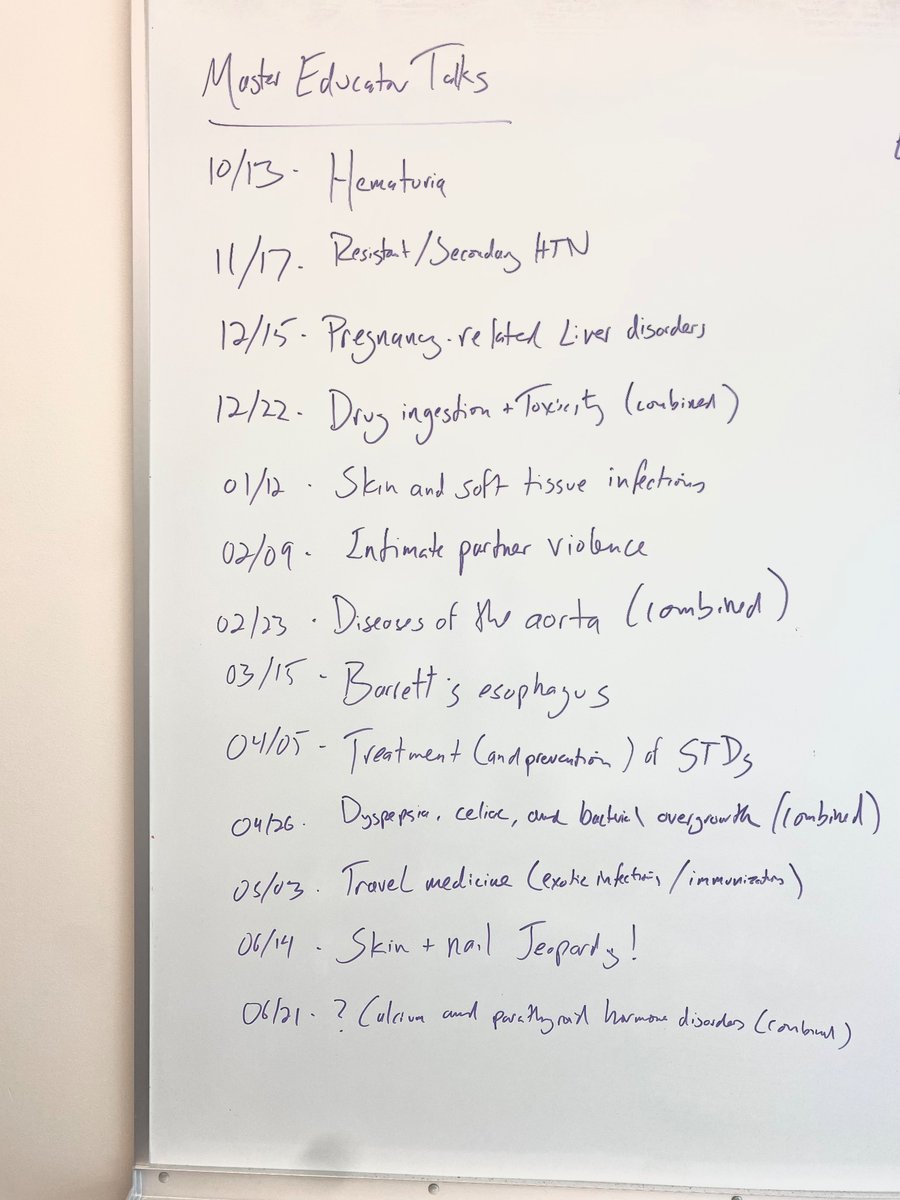 Master Educator Talks
10/13 - Hematuria
11/17 - Resistant/Secondary HTN
12/15 - Pregnancy-related Liver disorders
12/22 - Drug ingestion + Toxicity (combined)
01/12 - Skin and soft tissue infections
02/09 - Intimate partner violence
02/23 - Diseases of the aorta (combined)
03/15 - Barrett's esophagus
04/05 - Treatment (and prevention) of STDs
04/26 - Dyspepsia, celiac, and bacterial overgrowth (combined)
05/03 - Travel medicine (exotic infections/immunizations)
06/14 - Skin + nail Jeopardy!
06/21 - ? Calcium and parathyroid hormone disorders (combined)